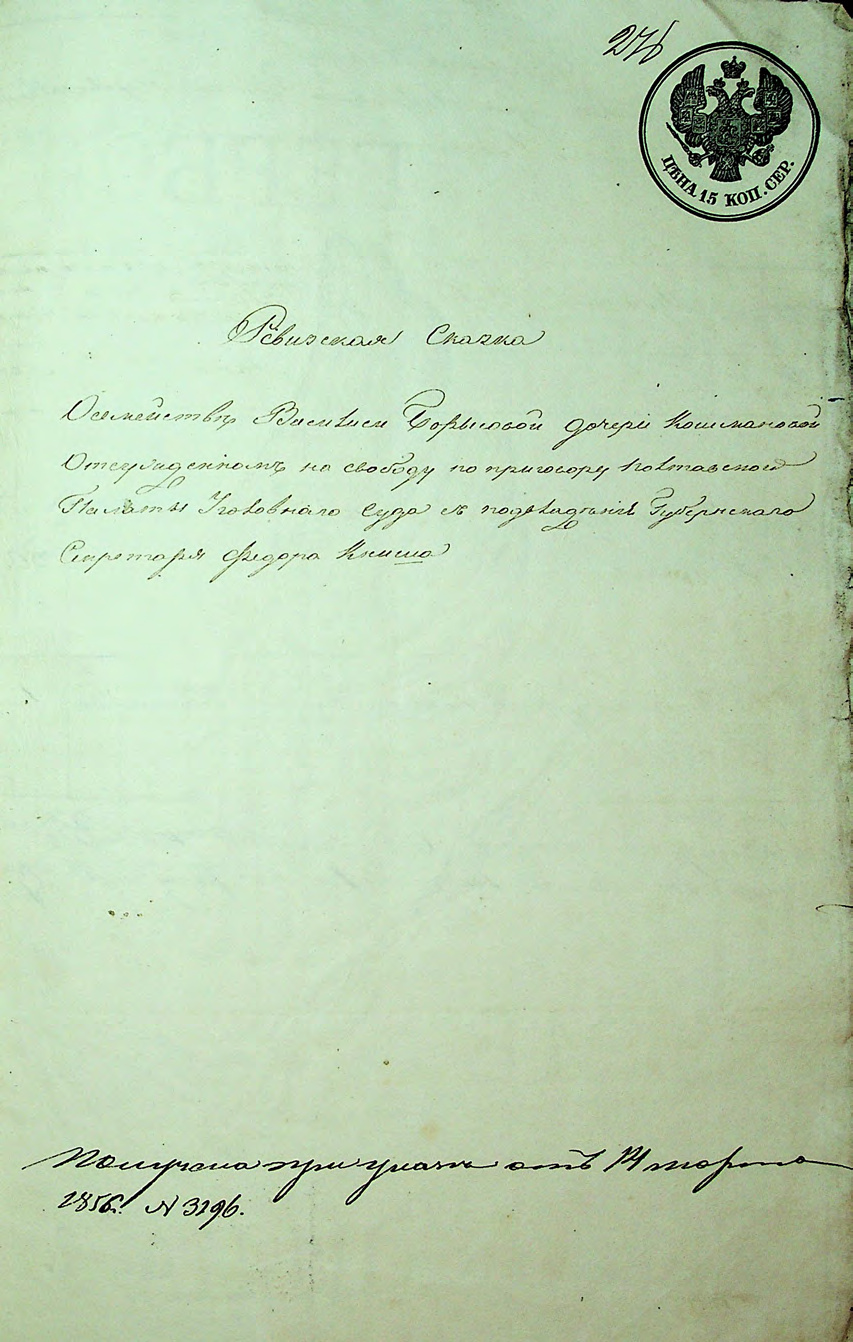 276
ЦѢНА 15 КОП. СЕР.
Ревизская Сказка
О семействѣ Василисы Борисовой дочери Кошмановой
Отсужденномъ на свободу по приговору Полтавской
Палаты Уголовнаго Суда съ подвладѣнія Губернскаго
Секретаря Федора Книша
Получена при указѣ отъ 14 марта
1856. N 3296.